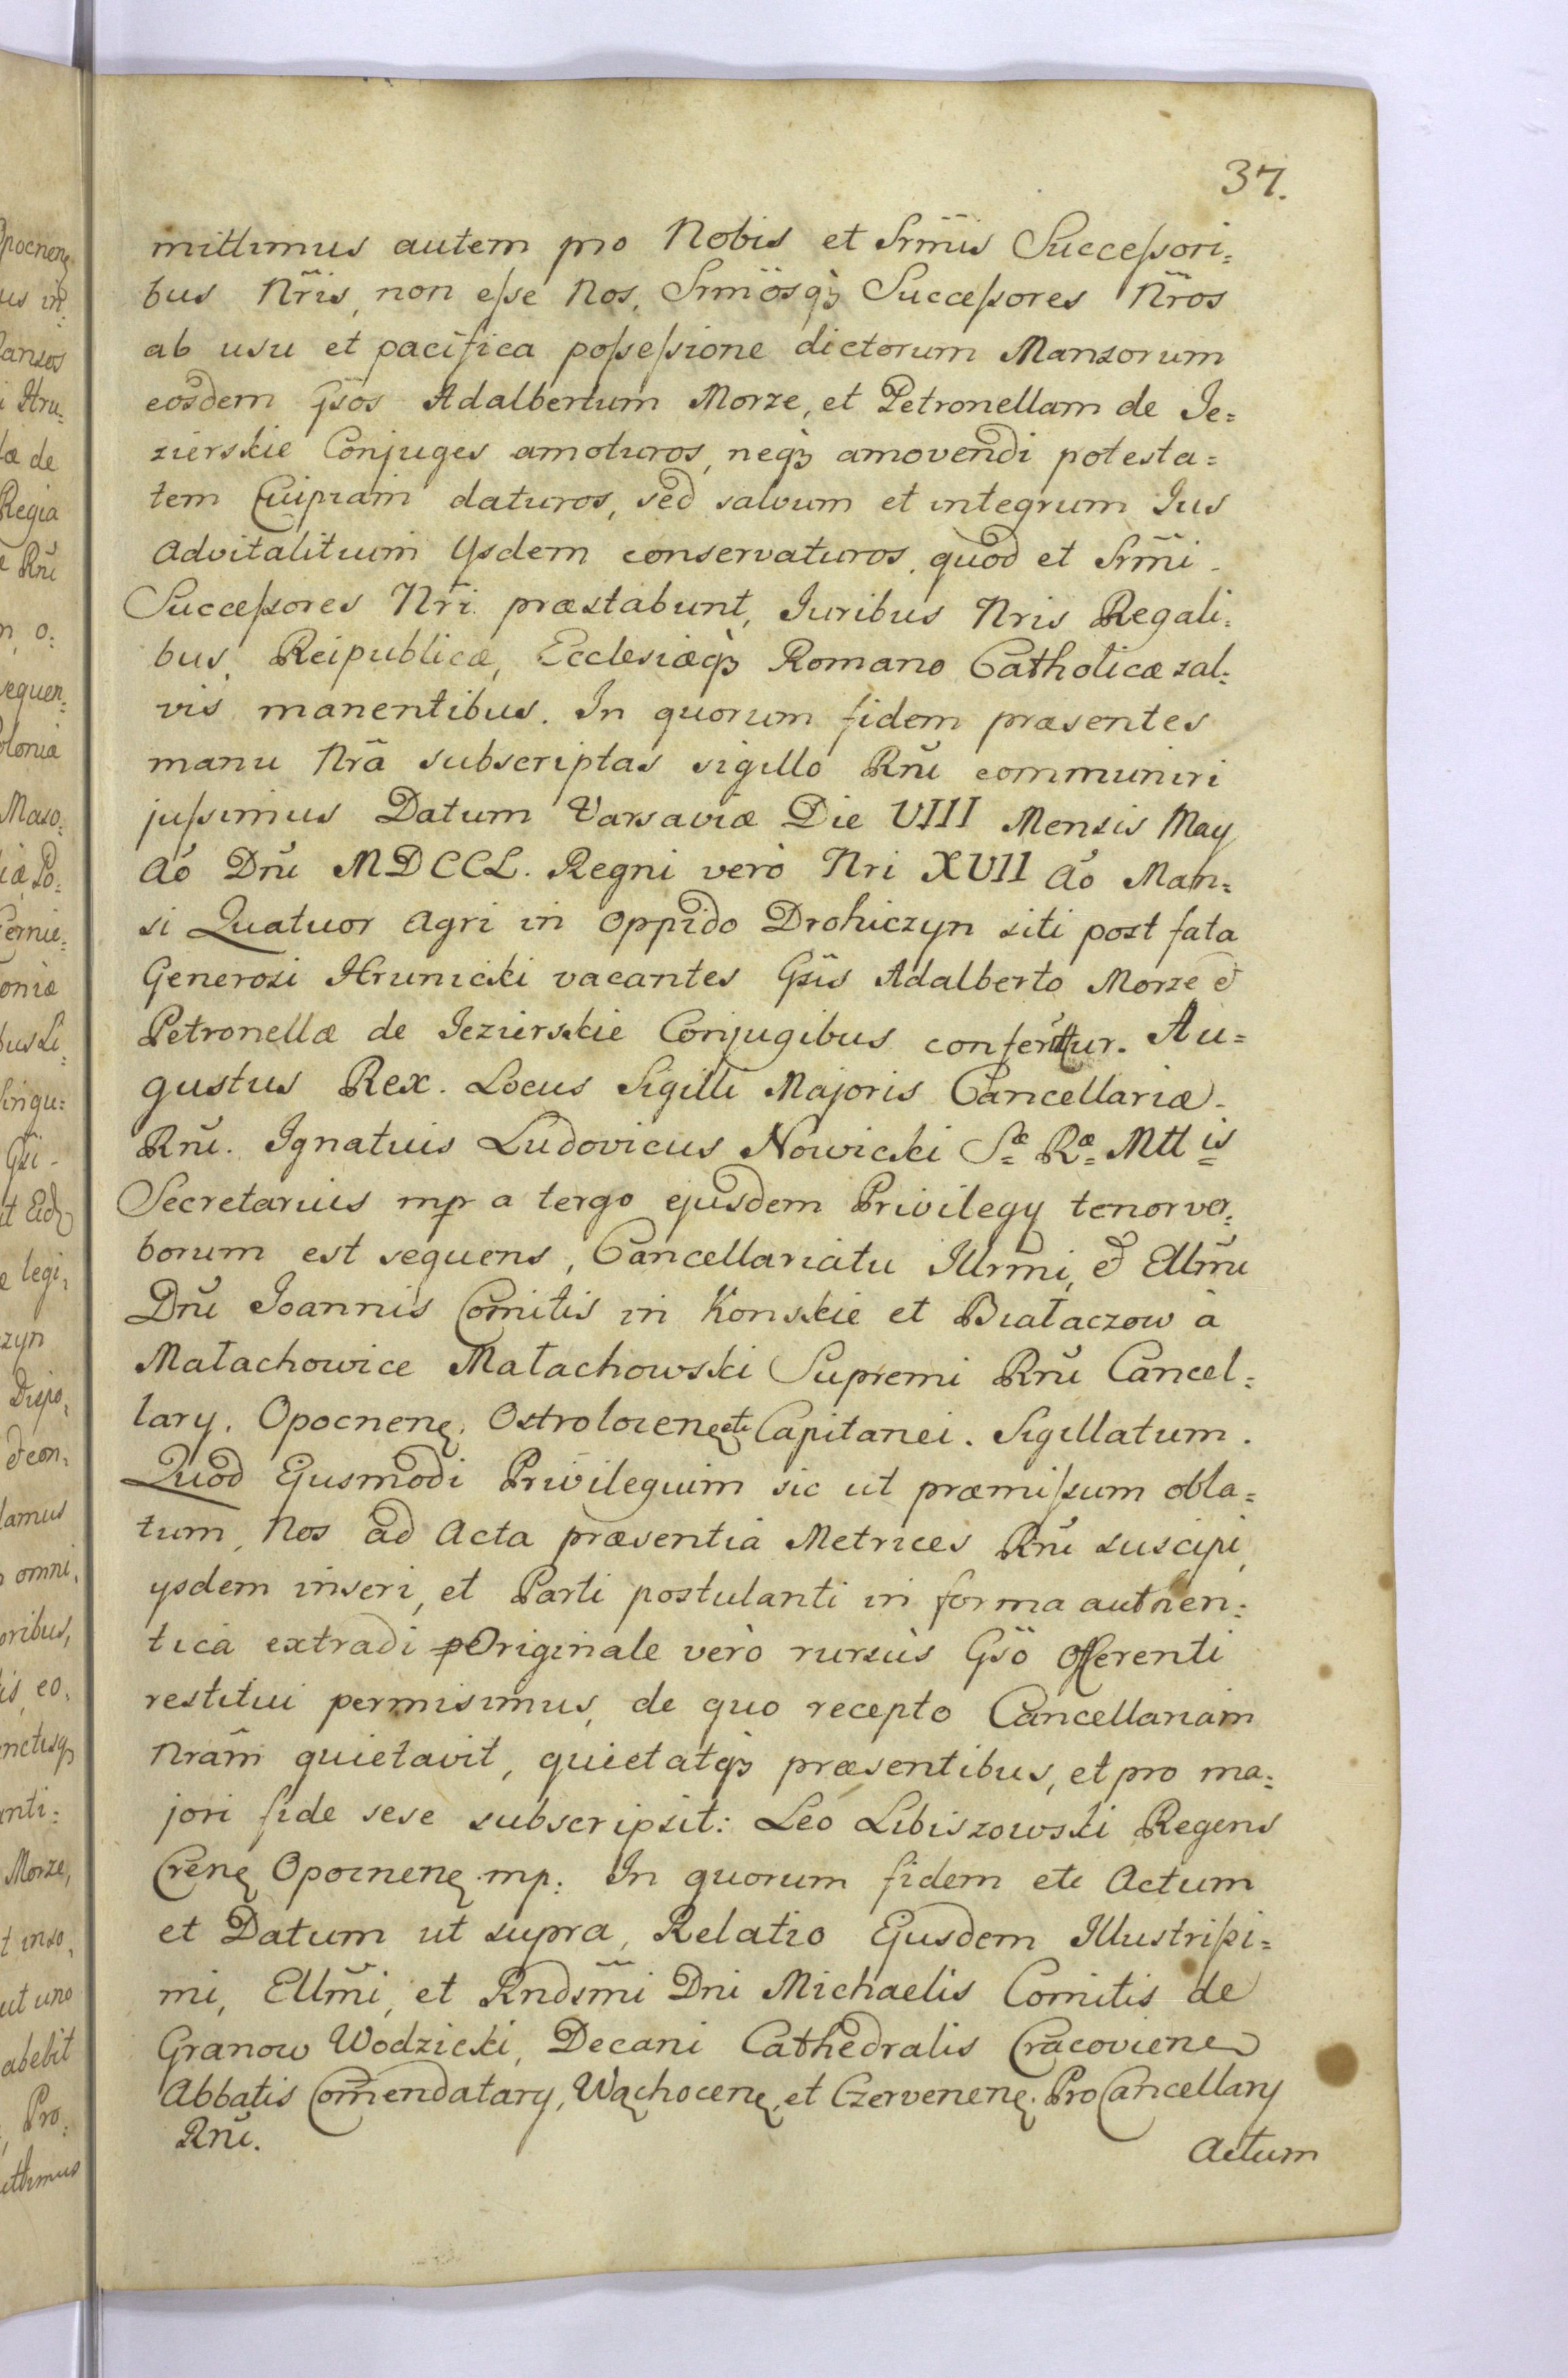 37.
mittimus autem pro Nobis et Srm̃is Succeſsori=
bus Nr̃is, non eſse Nos, Srm̃osqꝫ Succeſsores Nr̃os
ab usu et pacifica poſseſsione dictorum Mansorum
eosdem Gsos Adalbertum Morze, et Petronellam de Je=
zierskie Conjuges amoturos, neqꝫ amovendi potesta=
tem Cuipiam daturos, sed salvum et integrum Jus
Advitalitium Ysdem conservaturos, quod et Srm̃i
Succeſsores Nr̃i præstabunt, Juribus Nris Regali=
bus, Reipublicæ, Ecclesiæqꝫ Romano Catholicæ sal=
vis manentibus. In quorum fidem præsentes
manu Nrã subscriptas sigillo Rnĩ communiri
juſsimus Datum Varsaviæ Die VIII Mensis May
Aõ Dnĩ MDCCL. Regni verò Nri XVII Aõ Man=
si Quatuor Agri in Oppido Drohiczyn siti post fata
Generosi Hrunicki vacantes Gsis Adalberto Morze et
Petronellæ de Jezierskie Conjugibus conferuntur. Au=
gustus Rex. Locus Sigilli Majoris Cancellariæ
Rnĩ. Ignatius Ludovicus Nowicki Sæ Ræ Mttis
Secretarius mp a tergo ejusdem Privilegy tenor ver=
borum est sequens, Cancellariatu Illrmi, et Ellm̃i
Dnĩ Joannis Comitis in Konskie et Białaczow à
Małachowice Małachowski Supremi Rnĩ Cancel=
lary, Opocnenę, Ostrolocenę etc Capitanei. Sigillatum.
Quod Ejusmodi Privilegium sic ut præmiſsum obla=
tum, Nos ad Acta præsentia Metrices Rnĩ suscipi,
ysdem inseri, et Parti postulanti in forma authen=
tica extradi Originale verò rursùs Gsõ Offerenti
restitui permisimus, de quo recepto Cancellariam
Nram̃ quietavit, quietatqꝫ præsentibus, et pro ma=
jori fide sese subscripsit: Leo Libiszowski Regens
Crenę Opocnenę mp: In quorum fidem etc Actum
et Datum ut supra, Relatio Ejusdem Illustriſsi=
mi, Ellm̃i, et Rndsm̃i Dni Michaelis Comitis de
Granow Wodzicki, Decani Cathedralis Cracovienę
Abbatis Com̃endatary, Wąchocenę, et Czervenenę. ProCancellary
Rnĩ.
Actum